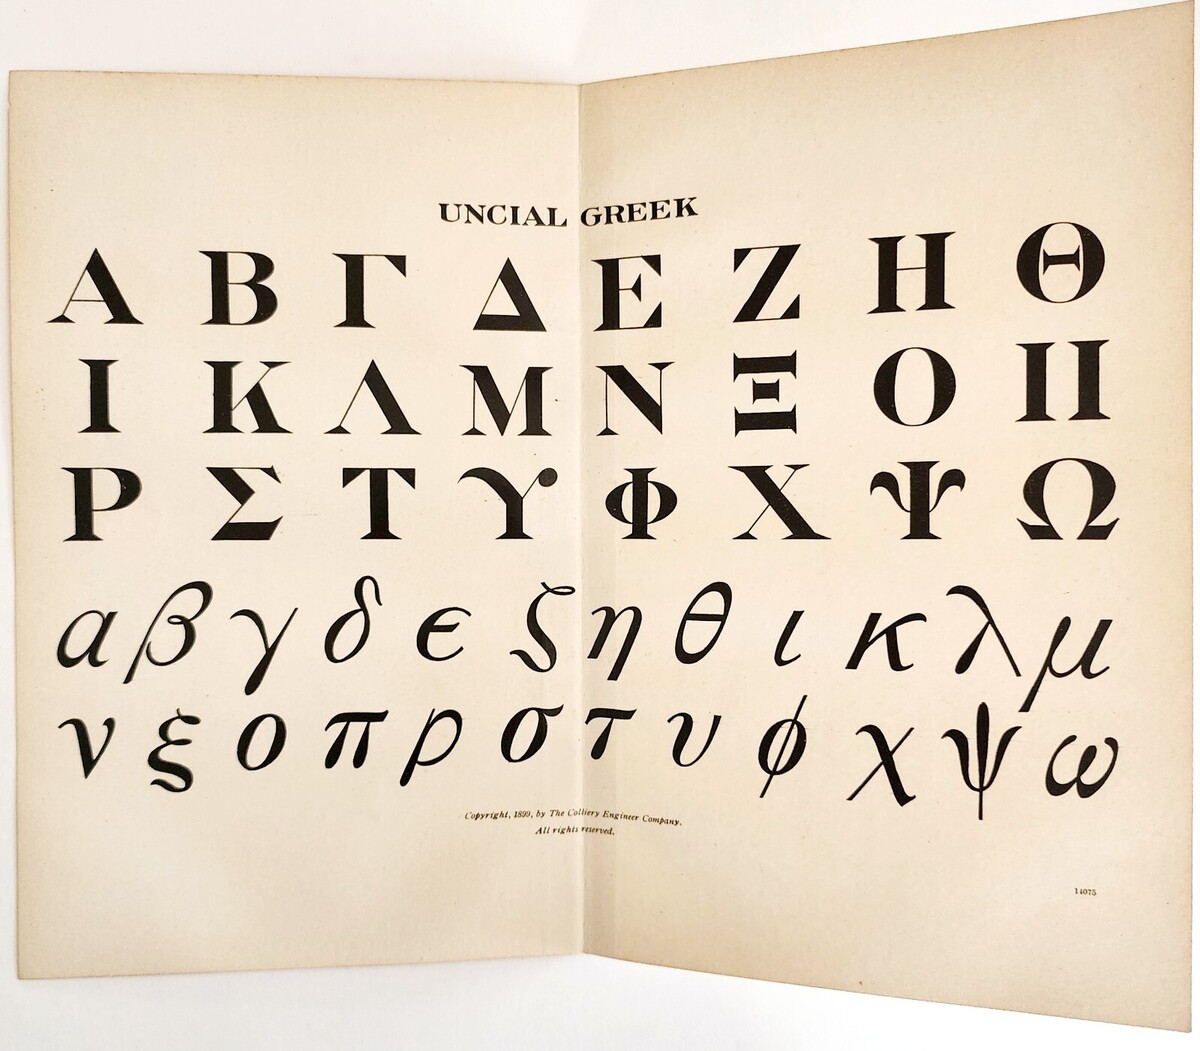 UNCIAL GREEK
Α Β Γ Δ Ε Ζ Η Θ
Ι Κ Λ Μ Ν Ξ Ο Π
Ρ Σ Τ Υ Φ Χ Ψ Ω
α β γ δ ϵ ζ η θ ι κ λ μ
ν ξ ο π ρ σ τ υ ϕ χ ψ ω
Copyright, 1899, by The Colliery Engineer Company.
All rights reserved.
14075